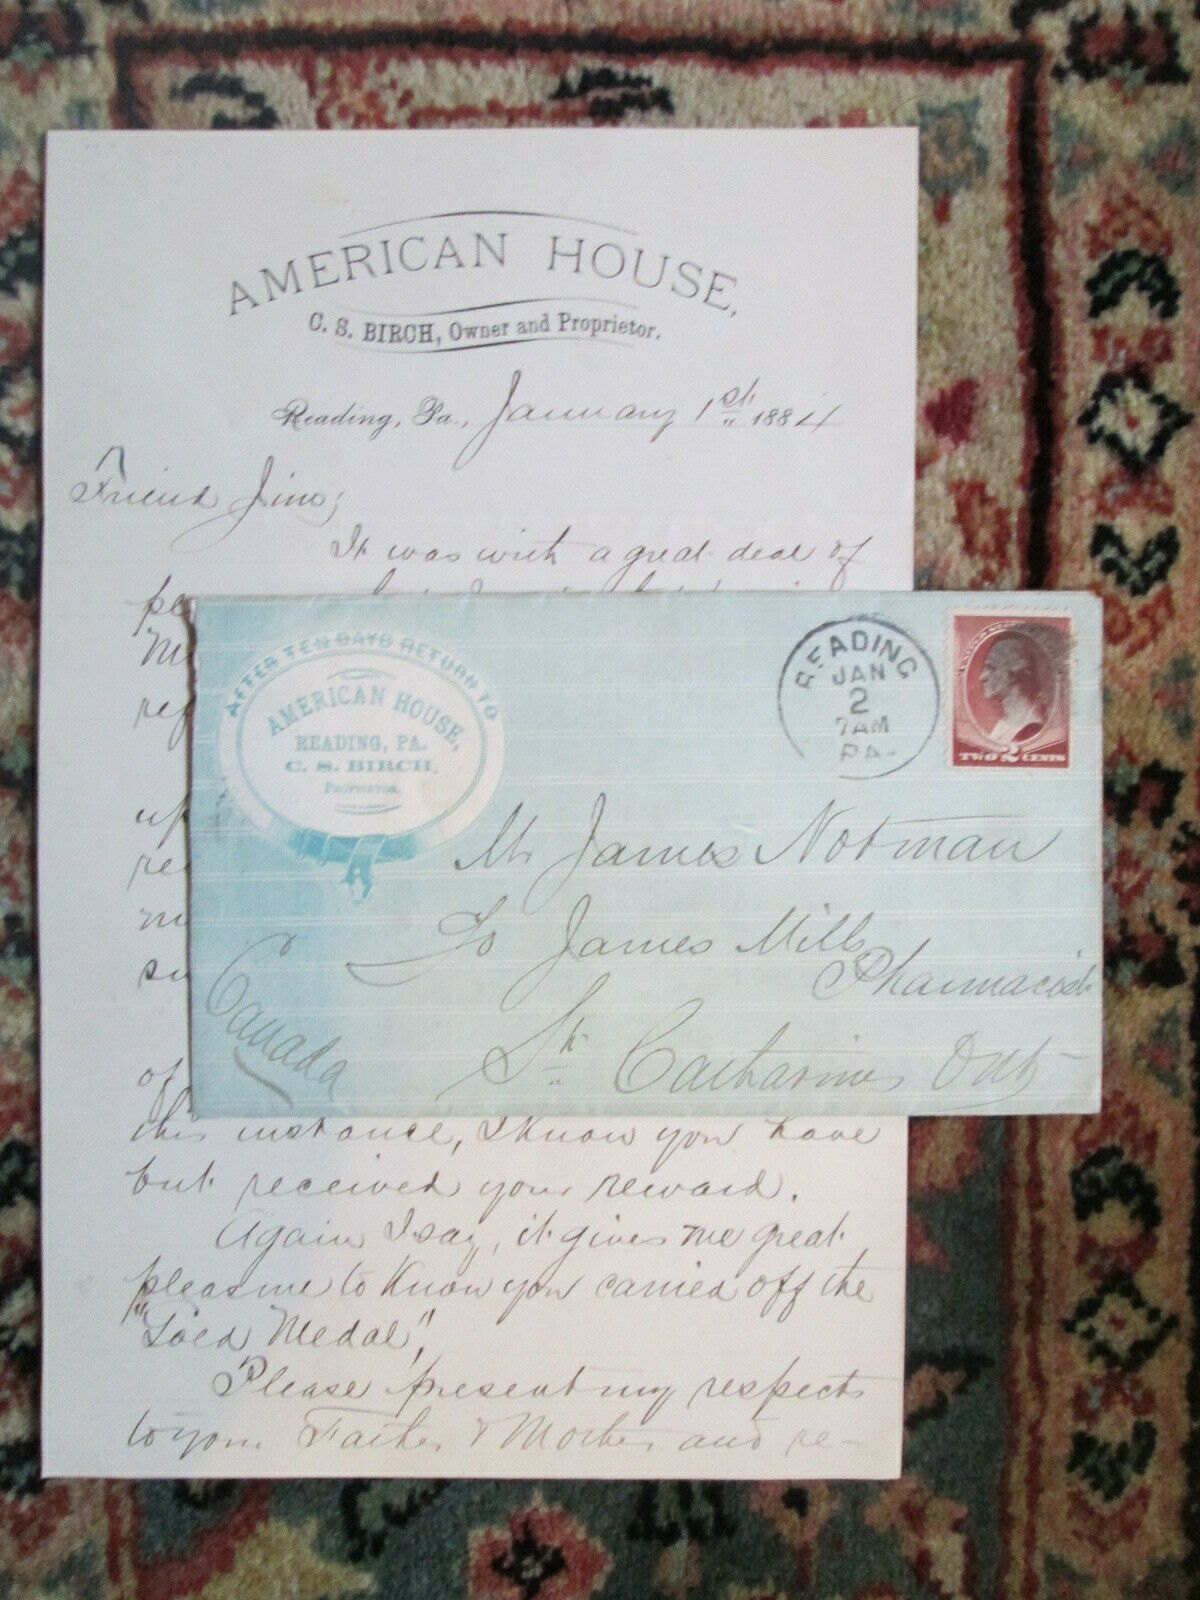 AMERICAN HOUSE,
C. S. BIRCH, Owner and Proprietor.
Reading, Pa., January 1st 1884
Friend Jim,
It was with a great deal of
of
this instance, I know you have
but received your reward.
Again I say, it gives me great
pleasure to know you carried off the
"Gold Medal",
Please present my respects
to your Father & Mother and re-
AFTER TEN DAYS RETURN TO
AMERICAN HOUSE,
READING, PA.
C. S. BIRCH,
PROPRIETOR.
READING
JAN
2
7AM
PA.
TWO 2 CENTS
Mr James Notman
To James Mills
Pharmacist
St. Catharines Ont
Canada